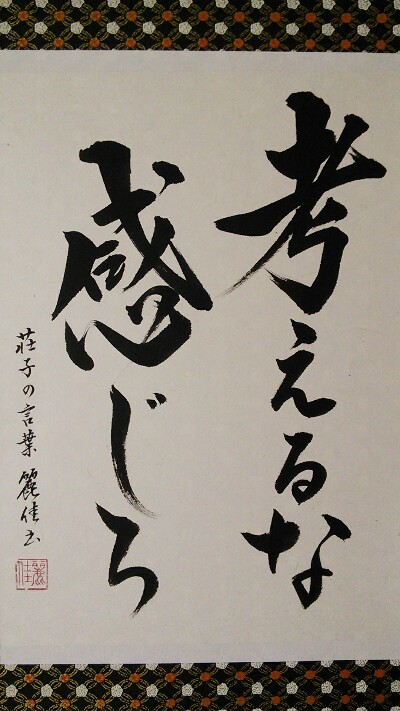 考えるな
感じろ
荘子の言葉 麗佳书
麗佳